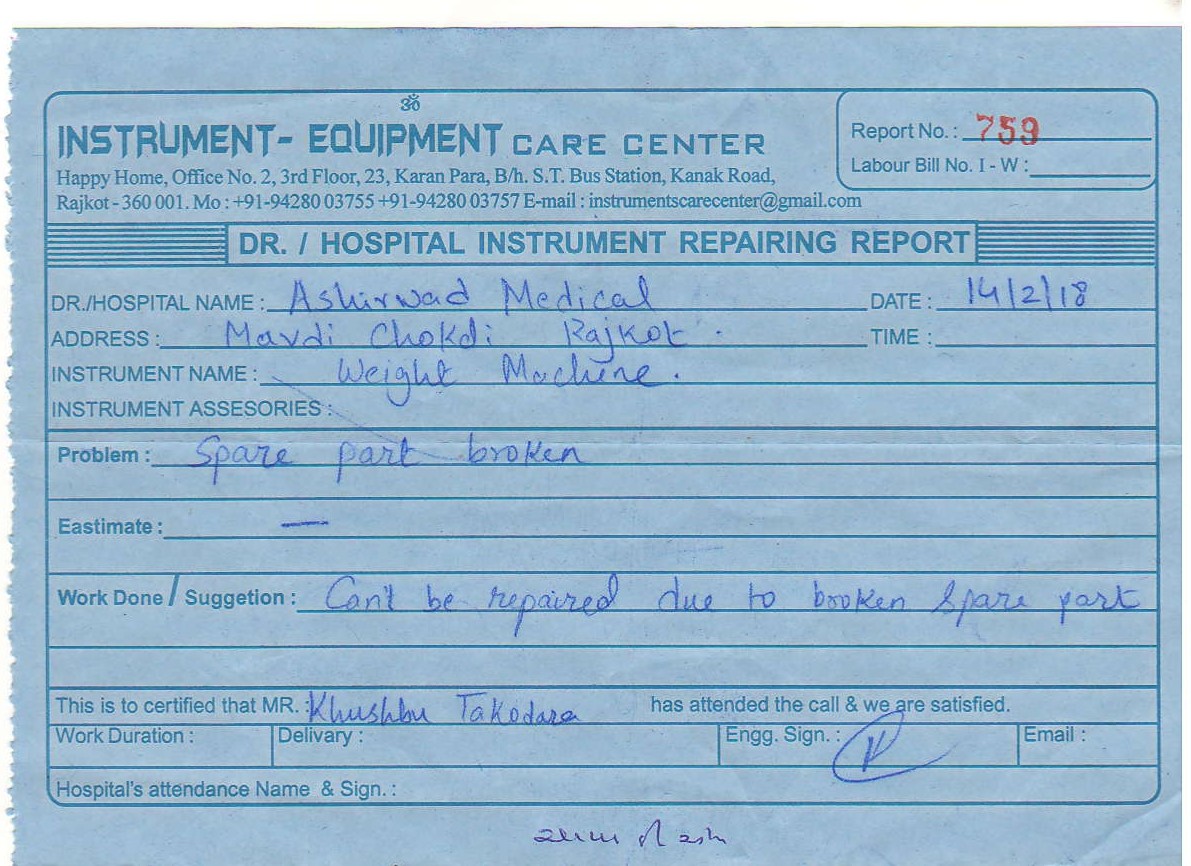 ॐ
INSTRUMENT- EQUIPMENT CARE CENTER
Happy Home, Office No. 2, 3rd Floor, 23, Karan Para, B/h. S.T. Bus Station, Kanak Road,
Rajkot - 360 001. Mo : +91-94280 03755 +91-94280 03757 E-mail : instrumentscarecenter@gmail.com
Report No. : 759
Labour Bill No. I - W :
DR. / HOSPITAL INSTRUMENT REPAIRING REPORT
DR./HOSPITAL NAME : Ashirwad Medical DATE : 14/2/18
ADDRESS : Mavdi Chokdi Rajkot. TIME :
INSTRUMENT NAME : Weight Machine.
INSTRUMENT ASSESORIES :
Problem : Spare part broken
Eastimate : —
Work Done / Suggetion : Can't be repaired due to broken Spare part
This is to certified that MR. : Khushbu Takodara has attended the call & we are satisfied.
Work Duration : Delivary : Engg. Sign. : Email :
Hospital's attendance Name & Sign. :